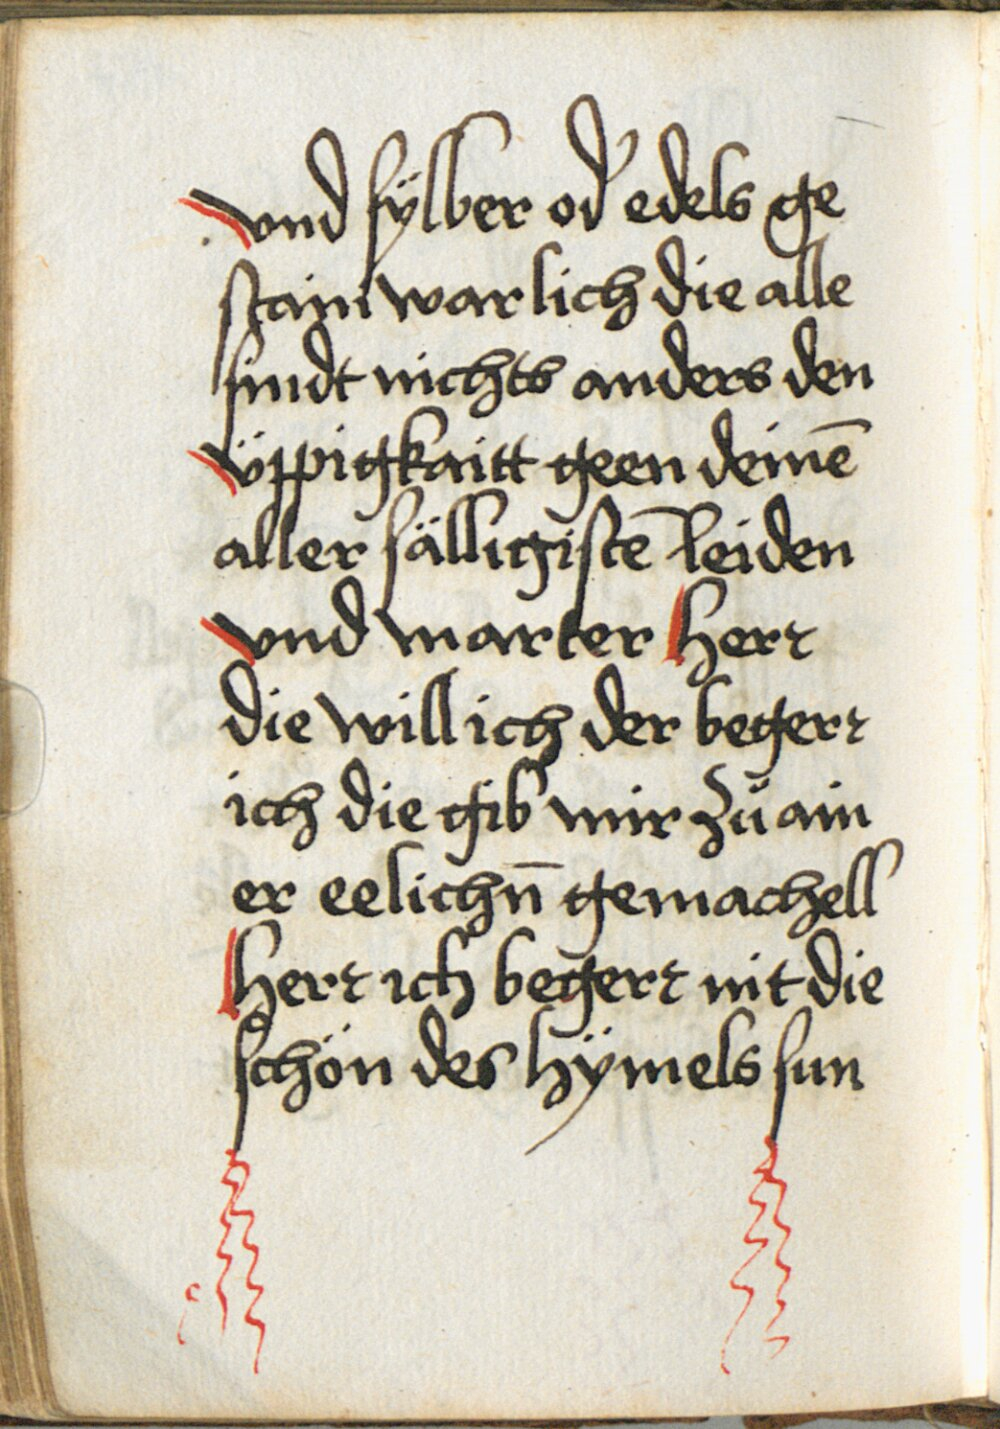 vnd sÿlber od' edels ge
stain warlich die alle
sindt nichts anders den
üppigkaitt geen deinē
aller sälligistē leiden
vnd marter herr
die will ich der begerr
ich die gib mir zü ain
er eelichn̄ gemachell
herr ich begerr nit die
schön des hÿmels sun